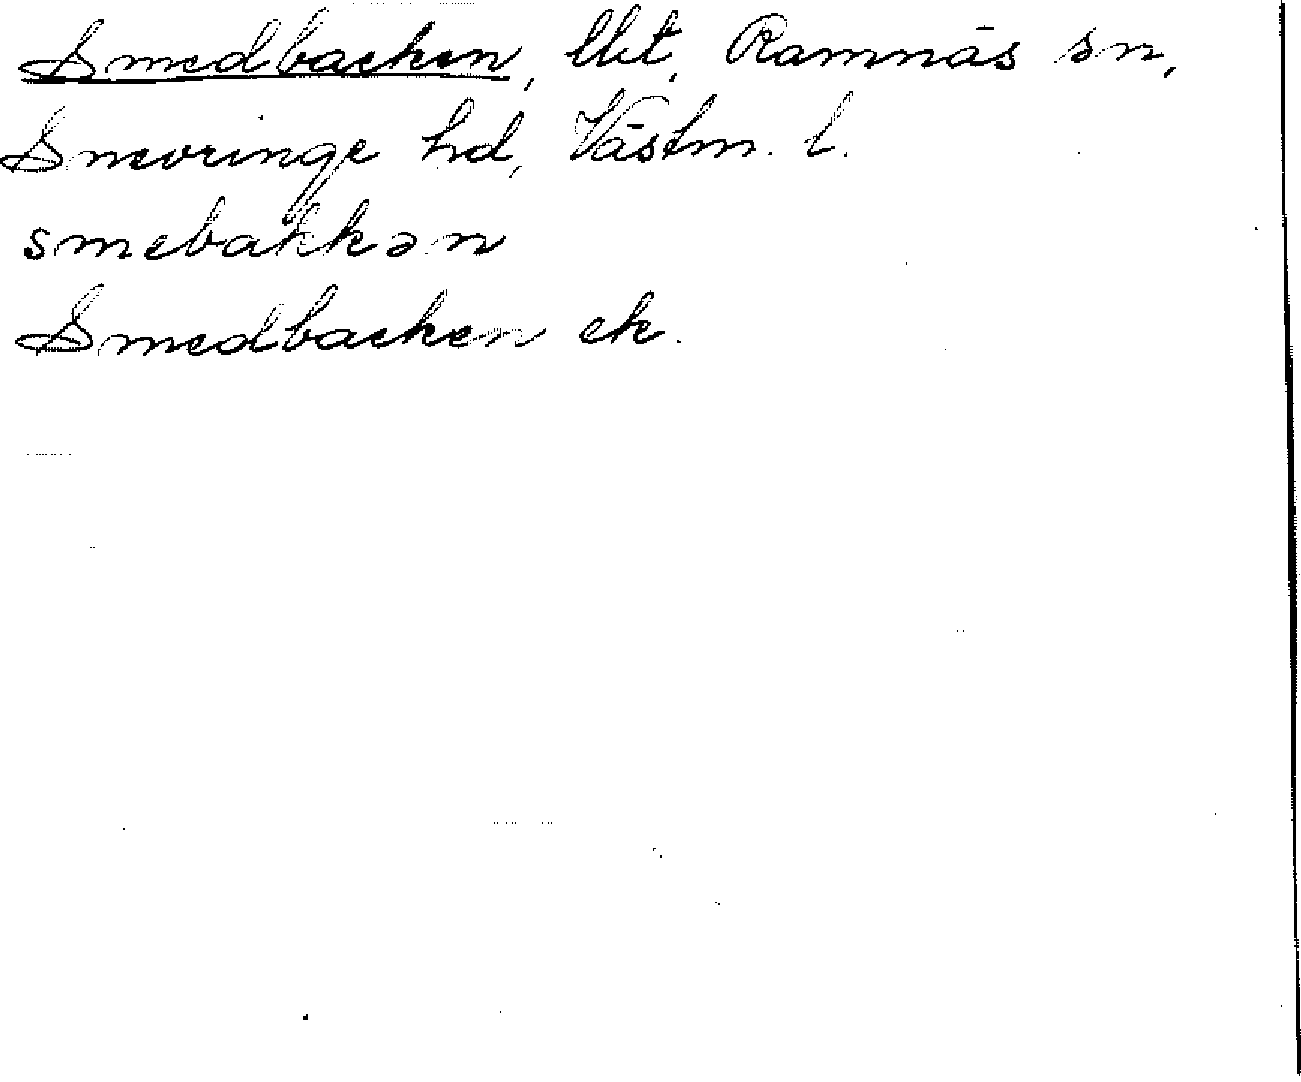 Smedbacken, lht, Ramnäs sn,
Snevringe hd, Västm. l.
smebakkən
Smedbacken ek.